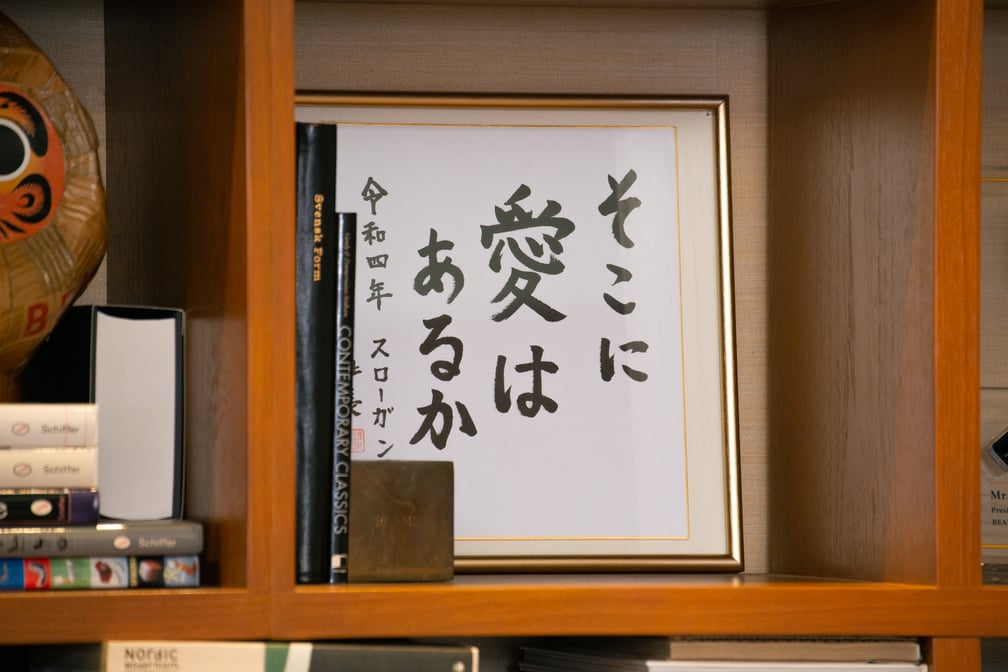 そこに
愛は
あるか
令和四年 スローガン
Svensk Form
CONTEMPORARY CLASSICS
BEAMS
B
Schiffer
Schiffer
Schiffer
Mr.
Presi
BEA
NORDIC